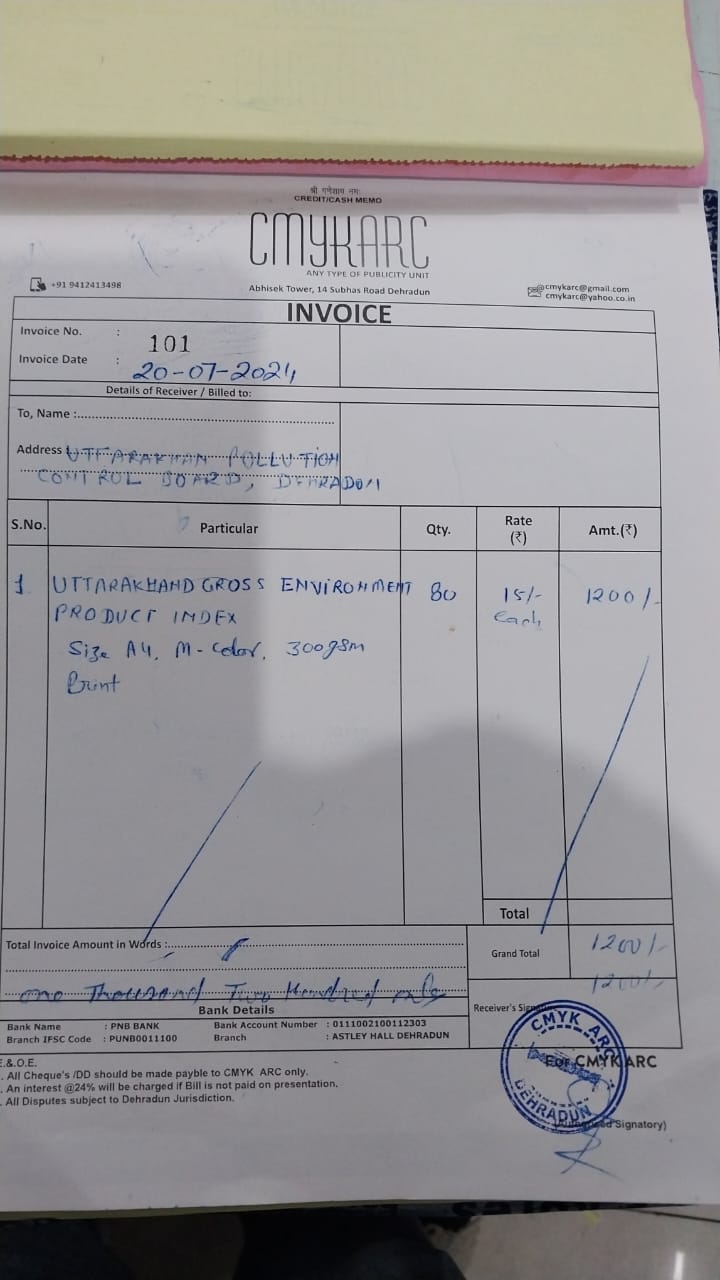 श्री गणेशाय नमः
CREDIT/CASH MEMO
CMYKARC
ANY TYPE OF PUBLICITY UNIT
+91 9412413498
Abhisek Tower, 14 Subhas Road Dehradun
cmykarc@gmail.com
cmykarc@yahoo.co.in
INVOICE
Invoice No. : 101
Invoice Date : 20-07-2024
Details of Receiver / Billed to:
To, Name :
Address UTTARAKHAN POLLUTION
CONTROL BOARD, DEHRADUN
S.No. Particular Qty. Rate (₹) Amt.(₹)
1 UTTARAKHAND GROSS ENVIRONMENT 80 15/- 1200/-
PRODUCT INDEX each
Size A4, M-Color, 300gsm
Print
Total
Total Invoice Amount in Words :
Grand Total 1200/-
1200/-
one Thousand Two Hundred only
Bank Details
Receiver's
Bank Name : PNB BANK Bank Account Number : 0111002100112303
Branch IFSC Code : PUNB0011100 Branch : ASTLEY HALL DEHRADUN
E.&.O.E.
. All Cheque's /DD should be made payble to CMYK ARC only.
. An interest @24% will be charged if Bill is not paid on presentation.
. All Disputes subject to Dehradun Jurisdiction.
CMYK ARC
DEHRADUN
For CMYK ARC
Signatory)